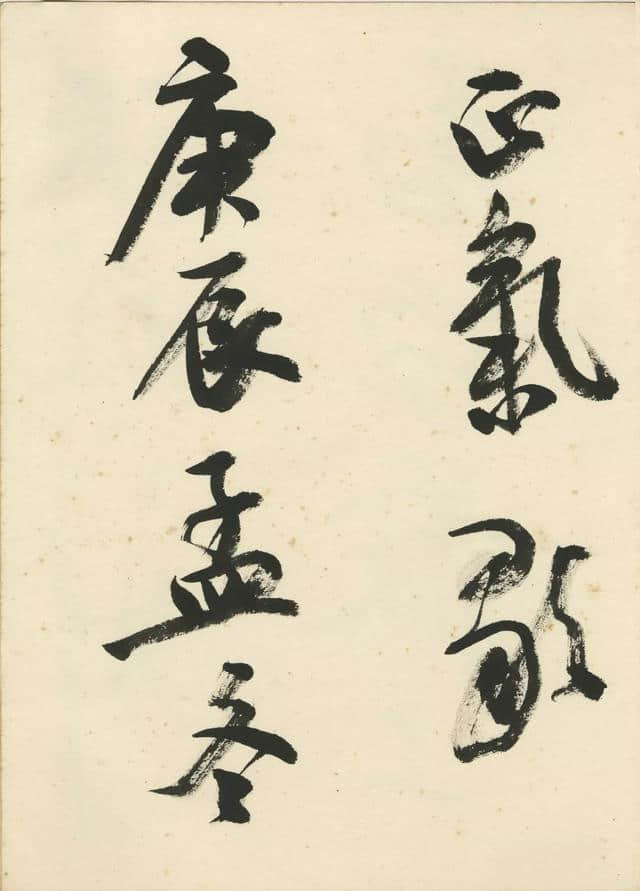 正氣歌
庚辰孟冬